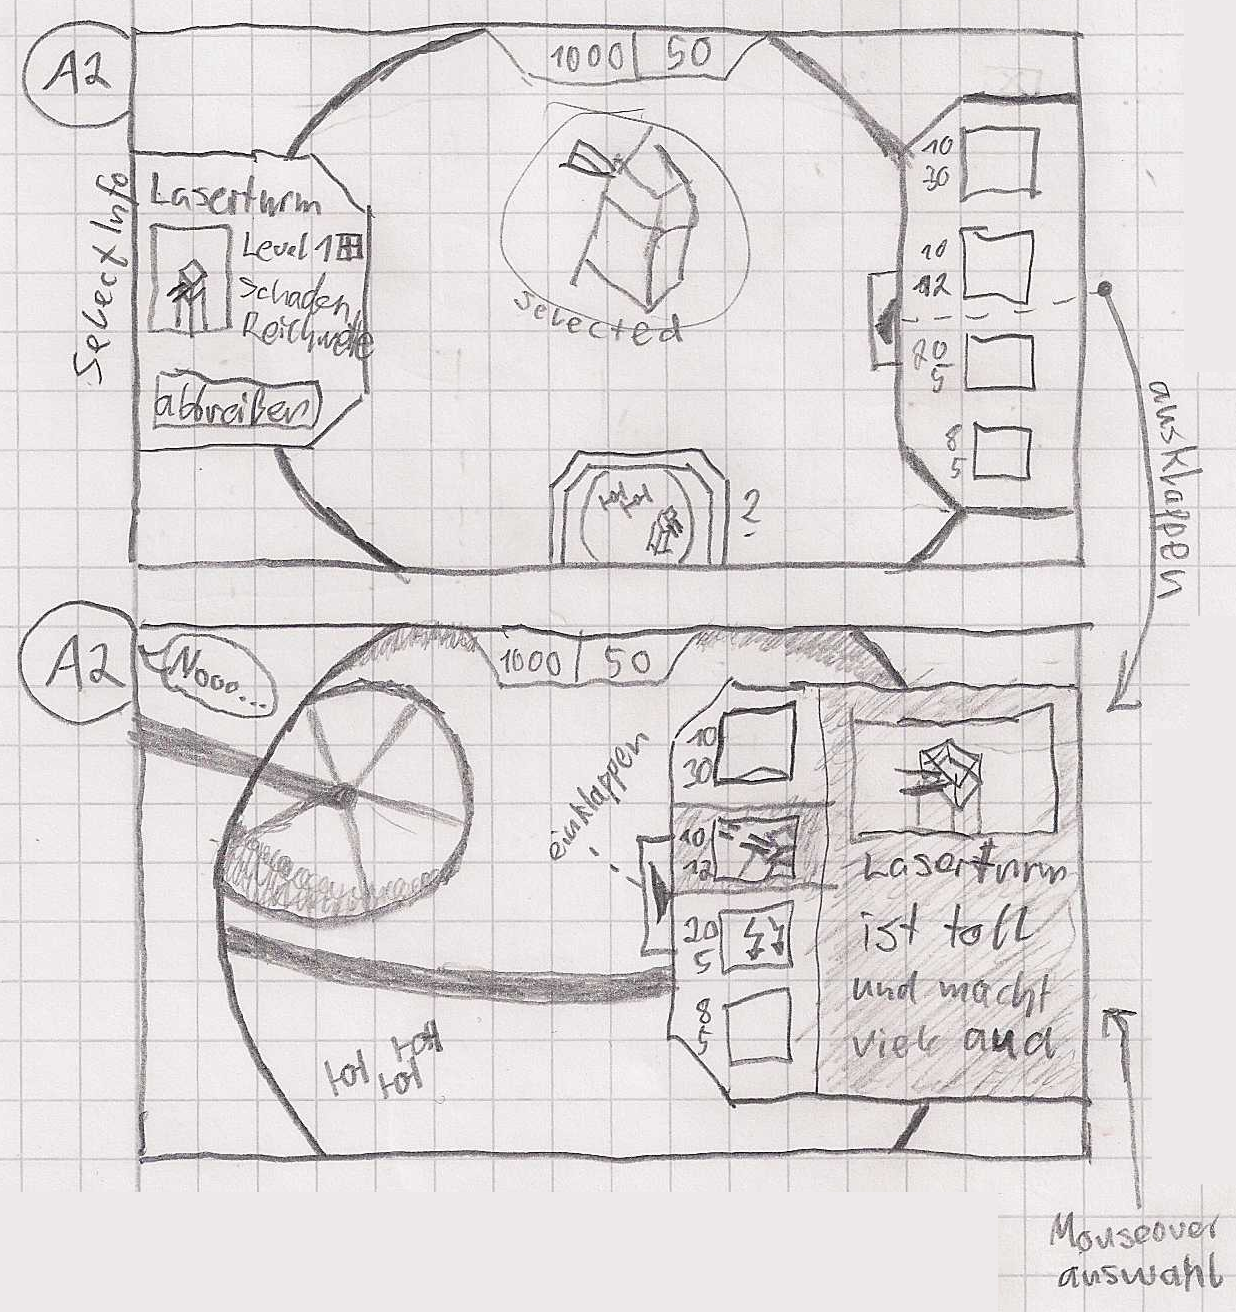 A2
1000 50
Select Info
Laserturm
Level 1
Schaden
Reichweite
abbreißen
selected
10
30
10
12
20
5
8
5
?
ausklappen
A2
Nooo...
1000 50
einklappen
10
30
10
12
20
5
8
5
Laserturm
ist toll
und macht
viel aua
Mouseover
auswahl